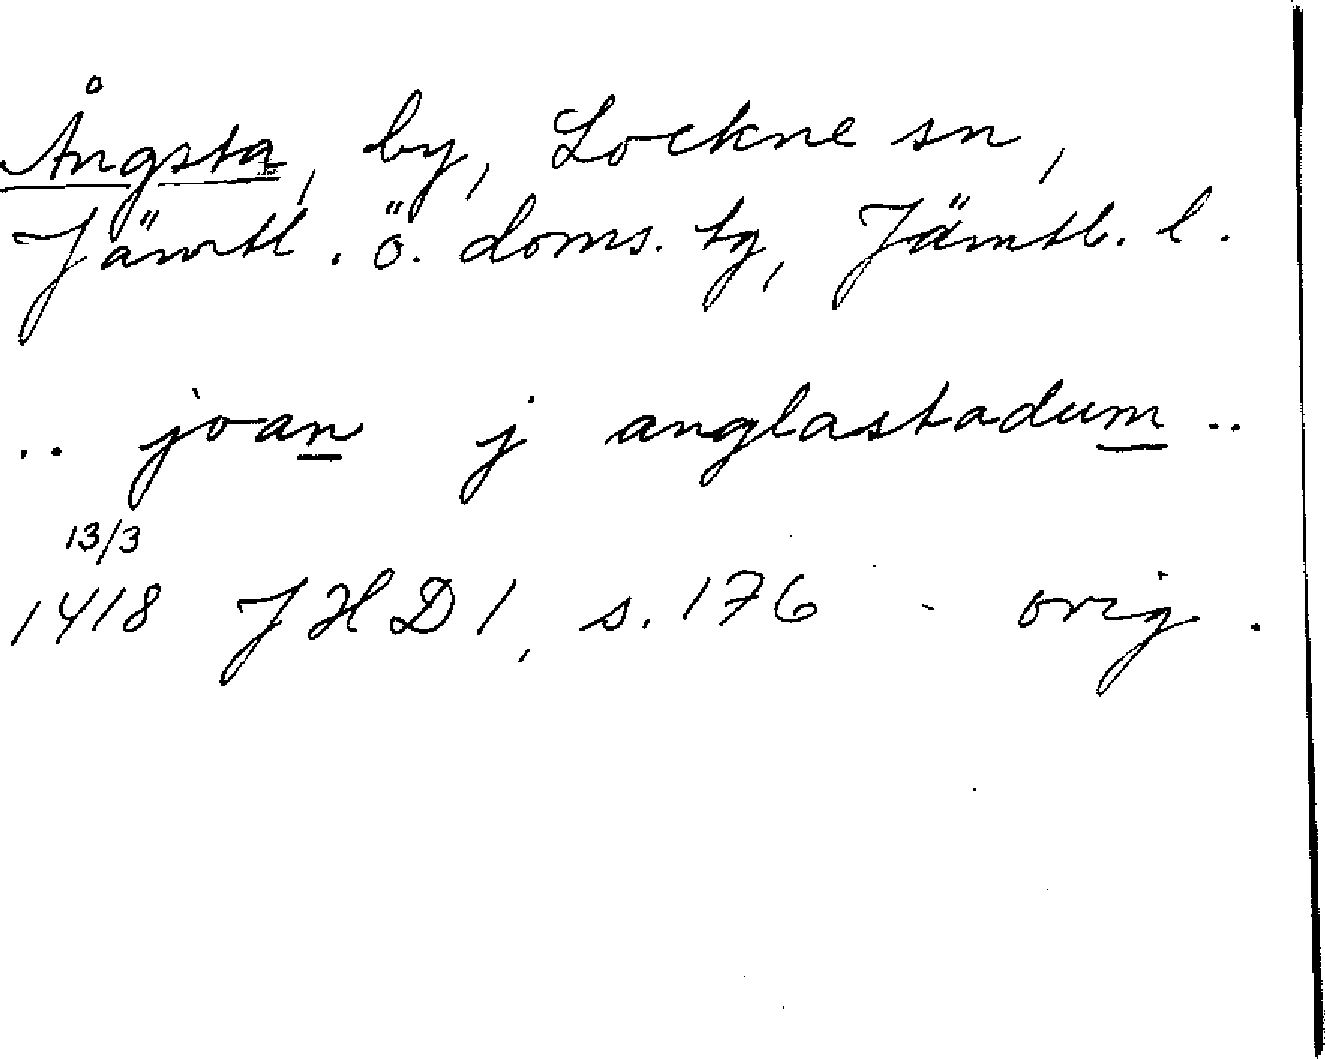 Ångsta, by, Lockne sn,
Jämtl. ö. doms. tg, Jämtl. l.
.. joan j anglastadum ..
13/3
1418 JHD 1, s. 176 - orig.